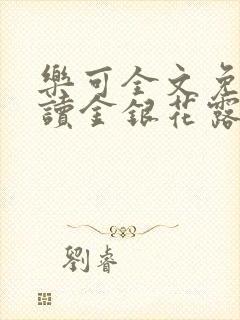 樂可全文免
讀金銀花露
劉睿